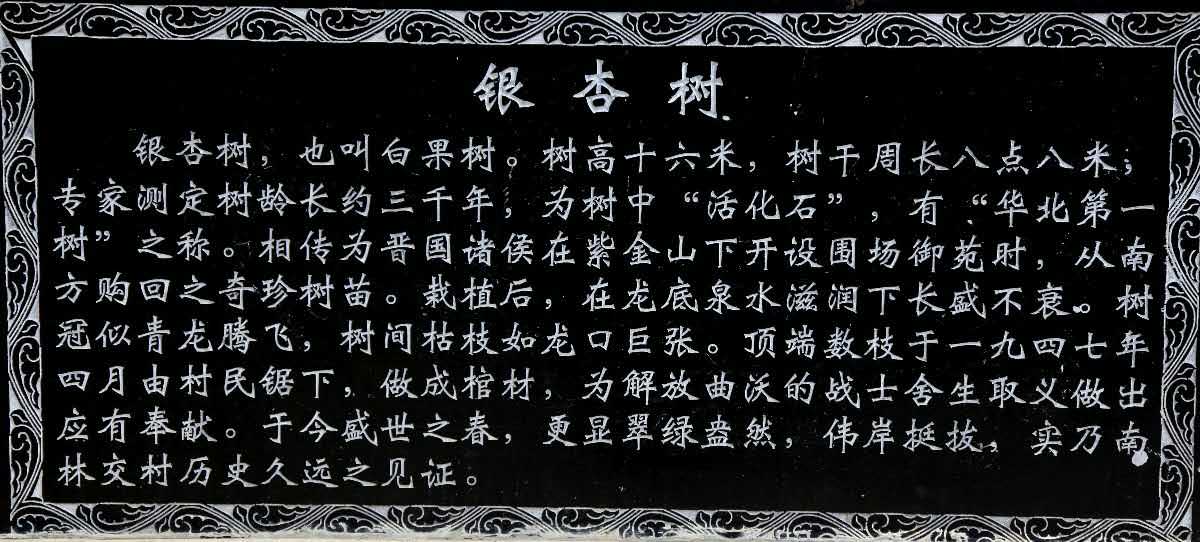 银杏树
银杏树，也叫白果树。树高十六米，树干周长八点八米；
专家测定树龄长约三千年，为树中“活化石”，有“华北第一
树”之称。相传为晋国诸侯在紫金山下开设围场御苑时，从南
方购回之奇珍树苗。栽植后，在龙底泉水滋润下长盛不衰。树
冠似青龙腾飞，树间枯枝如龙口巨张。顶端数枝于一九四七年
四月由村民锯下，做成棺材，为解放曲沃的战士舍生取义做出
应有奉献。于今盛世之春，更显翠绿盎然，伟岸挺拔，实乃南
林交村历史久远之见证。